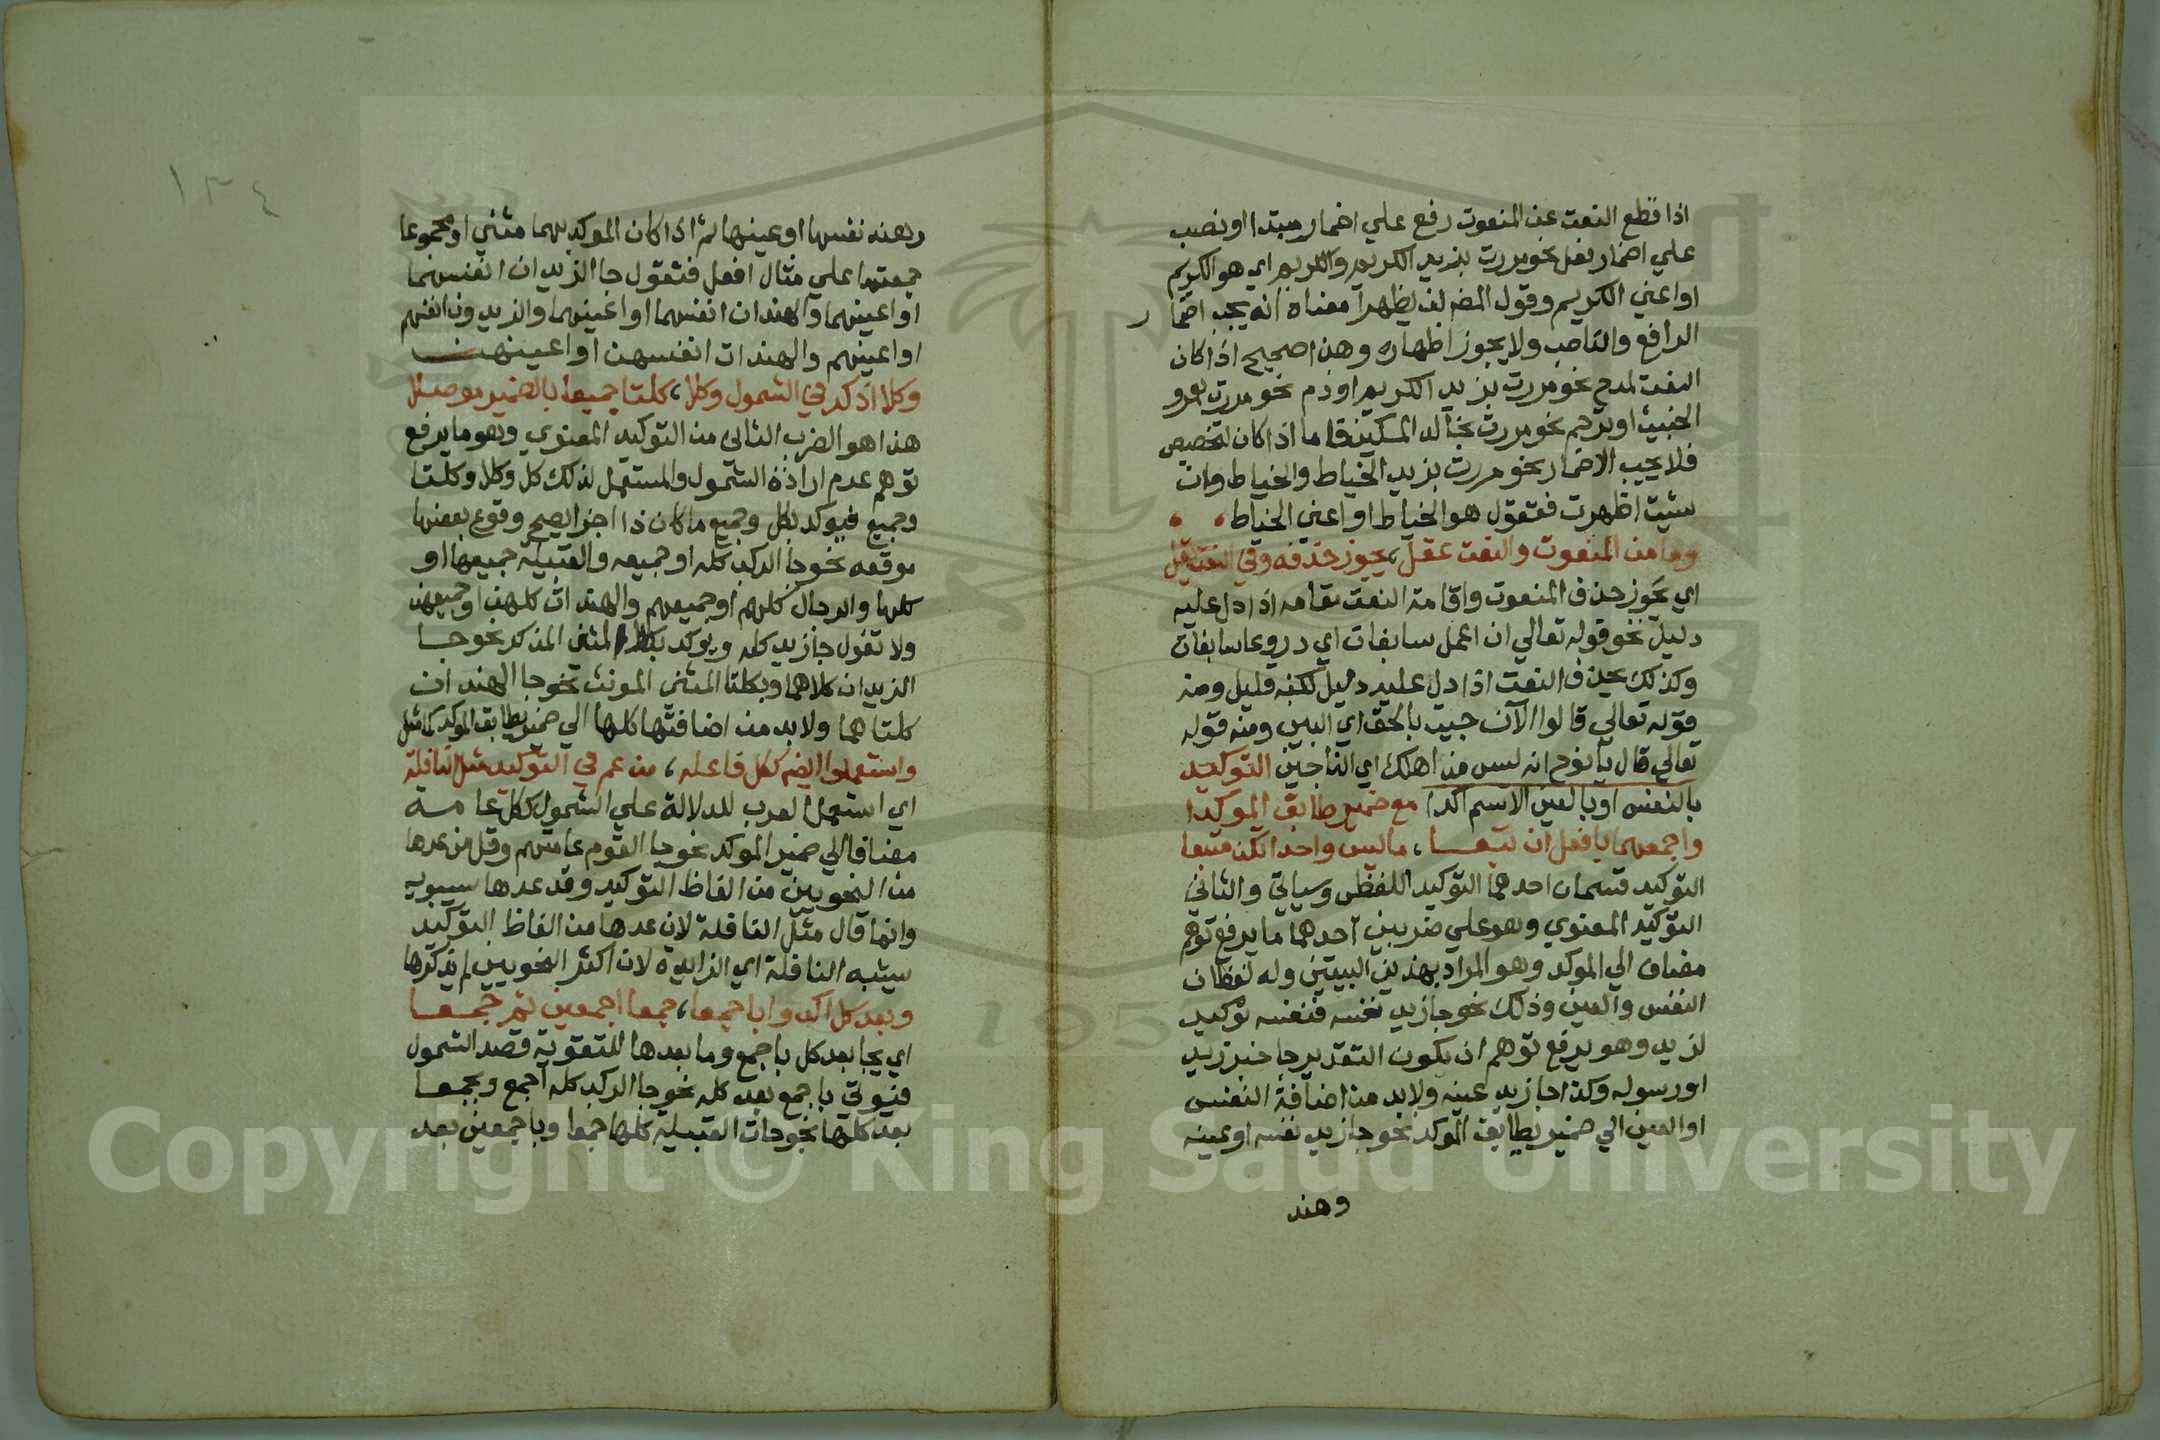 اذا قطع النعت عن المنعوت رفع علي اضمار مبتدا او نصب
علي اضمار فعل نحو مررت بزيد الكريم والكريم اي هو الكريم
او اعني الكريم وقول المص لن يظهرا معناه انه يجب اضمار
الرافع والناصب ولا يجوز اظهاره وهذا صحيح اذا كان
النعت لمدح نحو مررت بزيد الكريم او ذم نحو مررت بعمرو
الخبيث او ترحم نحو مررت بخالد المسكين فاما اذا كان لتخصيص
فلا يجب الاضمار نحو مررت بزيد الخياط والخياط وان
شيت اظهرت فتقول هو الخياط او اعني الخياط
وما من المنعوت والنعت عقل، يجوز حذفه وفي النعت يقل
اي يجوز حذف المنعوت واقامة النعت مقامه اذا دل عليه
دليل نحو قوله تعالي ان اعمل سابغات اي دروعا سابغات
وكذلك يحذف النعت اذا دل عليه دليل لكنه قليل ومنه
قوله تعالي قالوا الآن جيت بالحق اي البين ومنه قوله
تعالي قال يا نوح انه ليس من اهلك اي الناجين التوكيد
بالنفس او بالعين الاسم اكدا مع ضمير طابق الموكدا
واجمعهما بافعل ان تبعـا، ما ليس واحدا تكن متبعا
التوكيد قسمان احدهما التوكيد اللفظي وسياتي والثاني
التوكيد المعنوي وهو علي ضربين احدهما ما يرفع توهم
مضاف الي الموكد وهو المراد بهذين البيتين وله لفظان
النفس والعين وذلك نحو جا زيد نفسه فنفسه توكيد
لزيد وهو يرفع توهم ان يكون التقدير جا خبر زيد
او رسوله وكذا جا زيد عينه ولا بد من اضافة النفس
او العين الي ضمير يطابق الموكد نحو جا زيد نفسه او عينه
وهند
١٣٤
وهند نفسها او عينها ثم اذا كان الموكد بهما مثني او مجموعا
جمعتهما علي مثال افعل فتقول جا الزيدان انفسهما
او اعينهما والهندان انفسهما او اعينهما والزيدون انفسهم
او اعينهم والهندات انفسهن او اعينهن
وكلا اذكر في الشمول وكلا، كلتا جميعا بالضمير موصلا
هذا هو الضرب الثاني من التوكيد المعنوي وهو ما يرفع
توهم عدم ارادة الشمول والمستعمل لذلك كل وكلا وكلتا
وجميع فيوكد بكل وجميع ما كان ذا اجزا يصح وقوع بعضها
موقعه نحو جا الركب كله او جميعه والقبيلة جميعها او
كلها والرجال كلهم او جميعهم والهندات كلهن او جميعهن
ولا تقول جا زيد كله ويوكد بكلا المثني المذكر نحو جا
الزيدان كلاهما وبكلتا المثني المونث نحو جا الهندان
كلتاهما ولا بد من اضافتها كلها الي ضمير يطابق الموكد كما مثل
واستعملوا ايضا ككل فاعله، من عم في التوكيد مثل النافلة
اي استعمل العرب للدلالة علي الشمول ككل عامة
مضافا الي ضمير الموكد نحو جا القوم عامتهم وقل من عدها
من النحويين من الفاظ التوكيد وقد عدها سيبويه
وانما قال مثل النافلة لان عدها من الفاظ التوكيد
يشبه النافلة اي الزايدة لان اكثر النحويين لم يذكرها
وبعد كل اكدوا باجمعا، جمعا اجمعين ثم جمعـا
اي يجا بعد كل باجمع وما بعدها لتقوية قصد الشمول
فيوتي باجمع بعد كله نحو جا الركب كله اجمع وبجمعا
بعد كلها نحو جات القبيلة كلها جمعا وباجمعين بعد